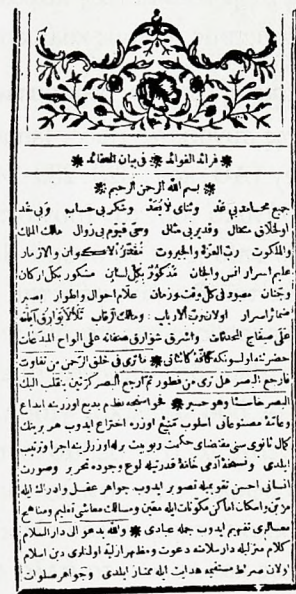 فرائد الفوائد * فى بيان العقائد
بسم الله الرحمن الرحيم
جميع محامد بى عد وثناى لا يعد وشكر بى حساب وبى حد
اول خلاق متعال وقدير بى مثال وحى قيوم بى زوال مالك الملك
والملكوت رب العزة والجبروت الاكوان والازمار
عليم اسرار انس والجان مذكور بكل لسان مشكور بكل اركان
وجنان معبود فى كل وقت وزمان علام احوال واطوار بصير
ضمائر واسرار اولان رب الارباب ومالك رقاب
على صفائح المحدثات واشرق شوارق صفاته على الواح المبدعات
حضرتنه اولسونكه ماترى فى خلق الرحمن من تفاوت
فارجع البصر هل ترى من فطور ثم ارجع البصر كرتين ينقلب اليك
البصر خاسئا وهو حسير * فحواسنجه نظم بديع اوزرينه ابداع
ومصنوعاتى اسلوب منيع اوزره اختراع ايدوب هر برينك
كمال ثانوى سنى مقتضاى حكمت ربوبيت برله اوزرلرينه اجرا وترتيب
ايلدى ونسخه آدمى قدرتيله لوح وجوده تحرير وصورت
انسانى احسن تقويمله تصوير ايدوب جواهر عقل وادراك ايله
مزين وامكان اما كن مكونات ايله معين ومسالك معاشى تعليم ومناهج
معالى تفهيم ايدوب جمله عبادى * والله يدعو الى دار السلام
كلام ايله دار سلامته دعوت ومظهر اراده اولنلرى دين اسلام
اولان صراط مستقيمه هدايت ايله ممتاز ايلدى وجواهر صلوات